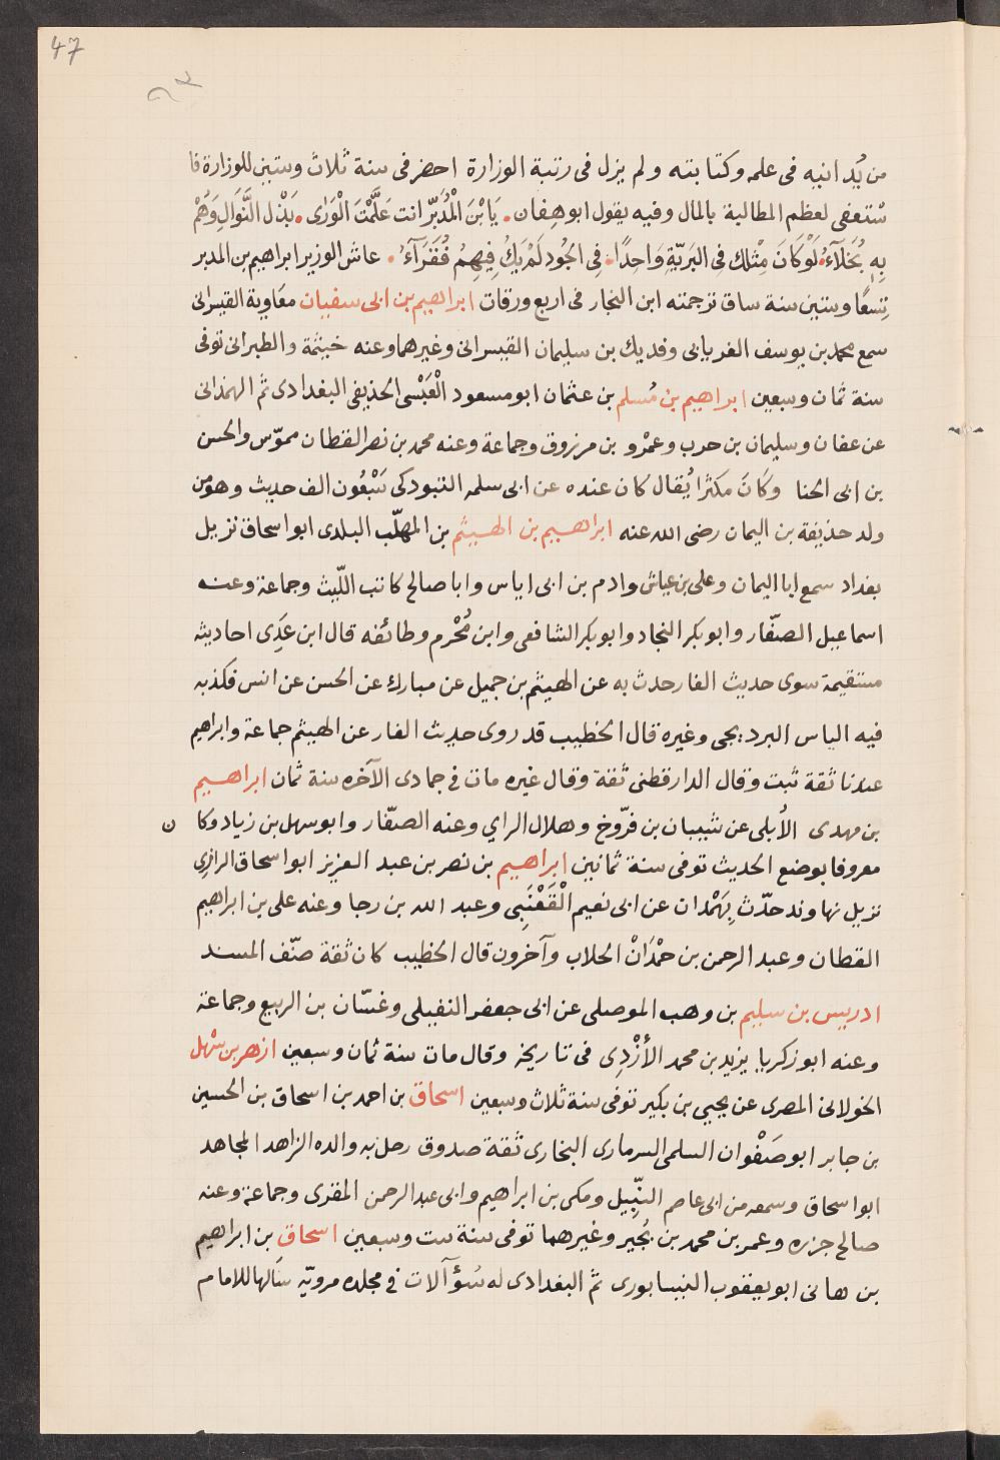 47
من يُدانيه فى علمه وكتابته ولم يزل فى رتبة الوزارة احضر فى سنة ثلاث وستين للوزارة فا
ستعفى لعظم المطالبة بالمال وفيه يقول ابو هفان . يَابْنَ الْمُدَبّر انت عَلَّمْتَ الْوَرٰى . بَذْلَ النَّوَالِ وَهُمْ
بِهِ بُخَلَآءُ . لَوْ كَانَ مِثْلك فِى البَرِيّةِ وَاحِدًا . فى الجُودِ لَمْ يَكُ فِيهِمُ فُقَرَآءُ . عاش الوزير ابراهيم بن المدبر
تِسعًا وستين سنة ساق ترجمته ابن النجار فى اربع ورقات ابراهيم بن ابى سفيان معَاوية القيسرانى
سمع محمد بن يوسف الفريابى وفديك بن سليمان القيسرانى وغيرهما وعنه خيثمة والطبرانى توفى
سنة ثمان وسبعين ابراهيم بن مُسلم بن عثمان ابو مسعود الْعَبْسى الحذيفى البغدادى ثم الهمذانى
عن عفان وسليمان بن حرب وعمْرو بن مرزوق وجماعة وعنه محمد بن نصر القطان مموّس والحسن
بن ابى الحنا وكَانَ مكثرًا يُقال كان عنده عن ابى سلمه التبودكى سَبْعُون الف حديث وهو من
ولد حذيفة بن اليمان رضى الله عنه ابراهيم بن الهيثم بن المهلّب البلدى ابو اسحاق نزيل
بغداد سمع ابا اليمان وعلى بن عياش وادم بن ابى اياس وابا صالح كاتب اللّيث وجماعة وعنه
اسماعيل الصفّار وابو بكر النجاد وابو بكر الشافعى وابن مُحْرم وطائفه قال ابن عَدِى احاديثه
مستقيمة سوى حديث الغار حدث به عن الهيثم بن جميل عن مبارك عن الحسن عن انس فكذبه
فيه الناس البرديجى وغيره قال الخطيب قد روى حديث الغار عن الهيثم جماعة وابراهيم
عندنا ثقة ثبت وقال الدارقطنى ثقة وقال غيره مات فى جمادى الآخره سنة ثمان ابراهيم
بن مهدى الأُبلى عن شيبان بن فرّوخ وهلال الراي وعنه الصفّار وابو سهل بن زياد وكا ن
معروفا بوضع الحديث توفى سنة ثمانين ابراهيم بن نصر بن عبد العزيز ابو اسحاق الرازى
نزيل نهاوند حدّث بِهَمْدان عن ابى نعيم الْقَعْنَبِى وعبد الله بن رجا وعنه على بن ابراهيم
القطان وعبد الرحمن بن حمْدَانْ الجلاب وآخرون قال الخطيب كان ثقة صنّف المسند
ادريس بن سليم بن وهب الموصلى عن ابى جعفر النفيلى وغسّان بن الربيع وجماعة
وعنه ابو زكريا يزيد بن محمد الأزْدِى فى تاريخه وقال مات سنة ثمان وسبعين ازهر بن سْهل
الخولانى المصرى عن يحيى بن بكير توَفى سنة ثلاث وسبعين اسحاق بن احمد بن اسحاق بن الحسين
بن جابر ابو صَفْوان السلمى السرمارى البخارى ثقة صدوق رحل به والده الزاهد المجاهد
ابو اسحاق وسمعه من ابى عاصم النّبِيل ومكى بن ابراهيم وابى عبد الرحمن المقرى وجماعة وعنه
صالح جزره وعمر بن محمد بن بُجير وغيرهما توفى سنة ست وسبعين اسحاق بن ابراهيم
بن هانى ابو يعقوب النيسابورى ثمّ البغدادى له سُؤآلات فى مجلده مرويّه سَالها للامام